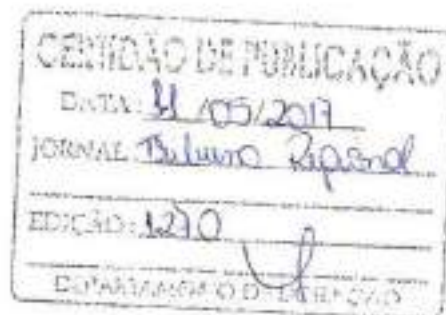 CERTIDÃO DE PUBLICAÇÃO
DATA: 11/05/2017
JORNAL: Tribuna Regional
EDIÇÃO: 1270
DEPARTAMENTO DE